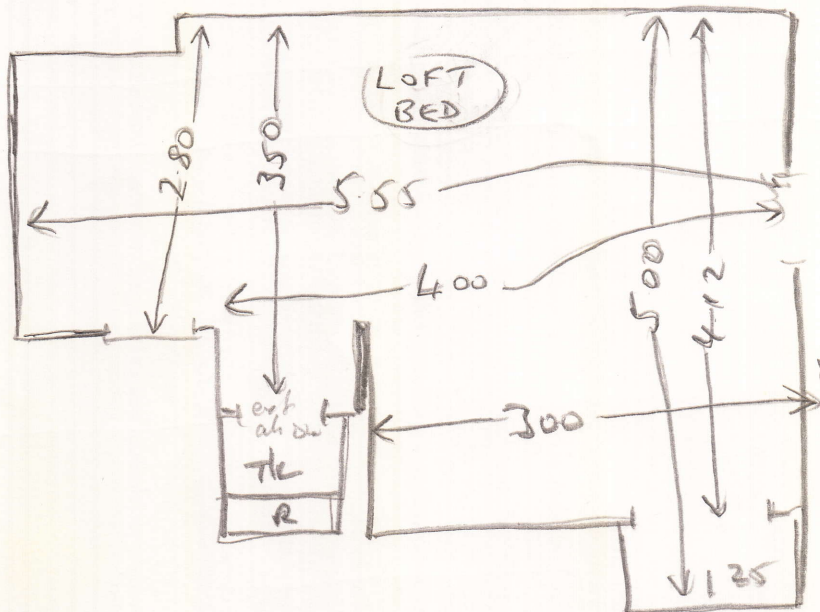 LOFT
BED
2.80
350
5.55
400
500
4.12
300
T/L
R
1.25